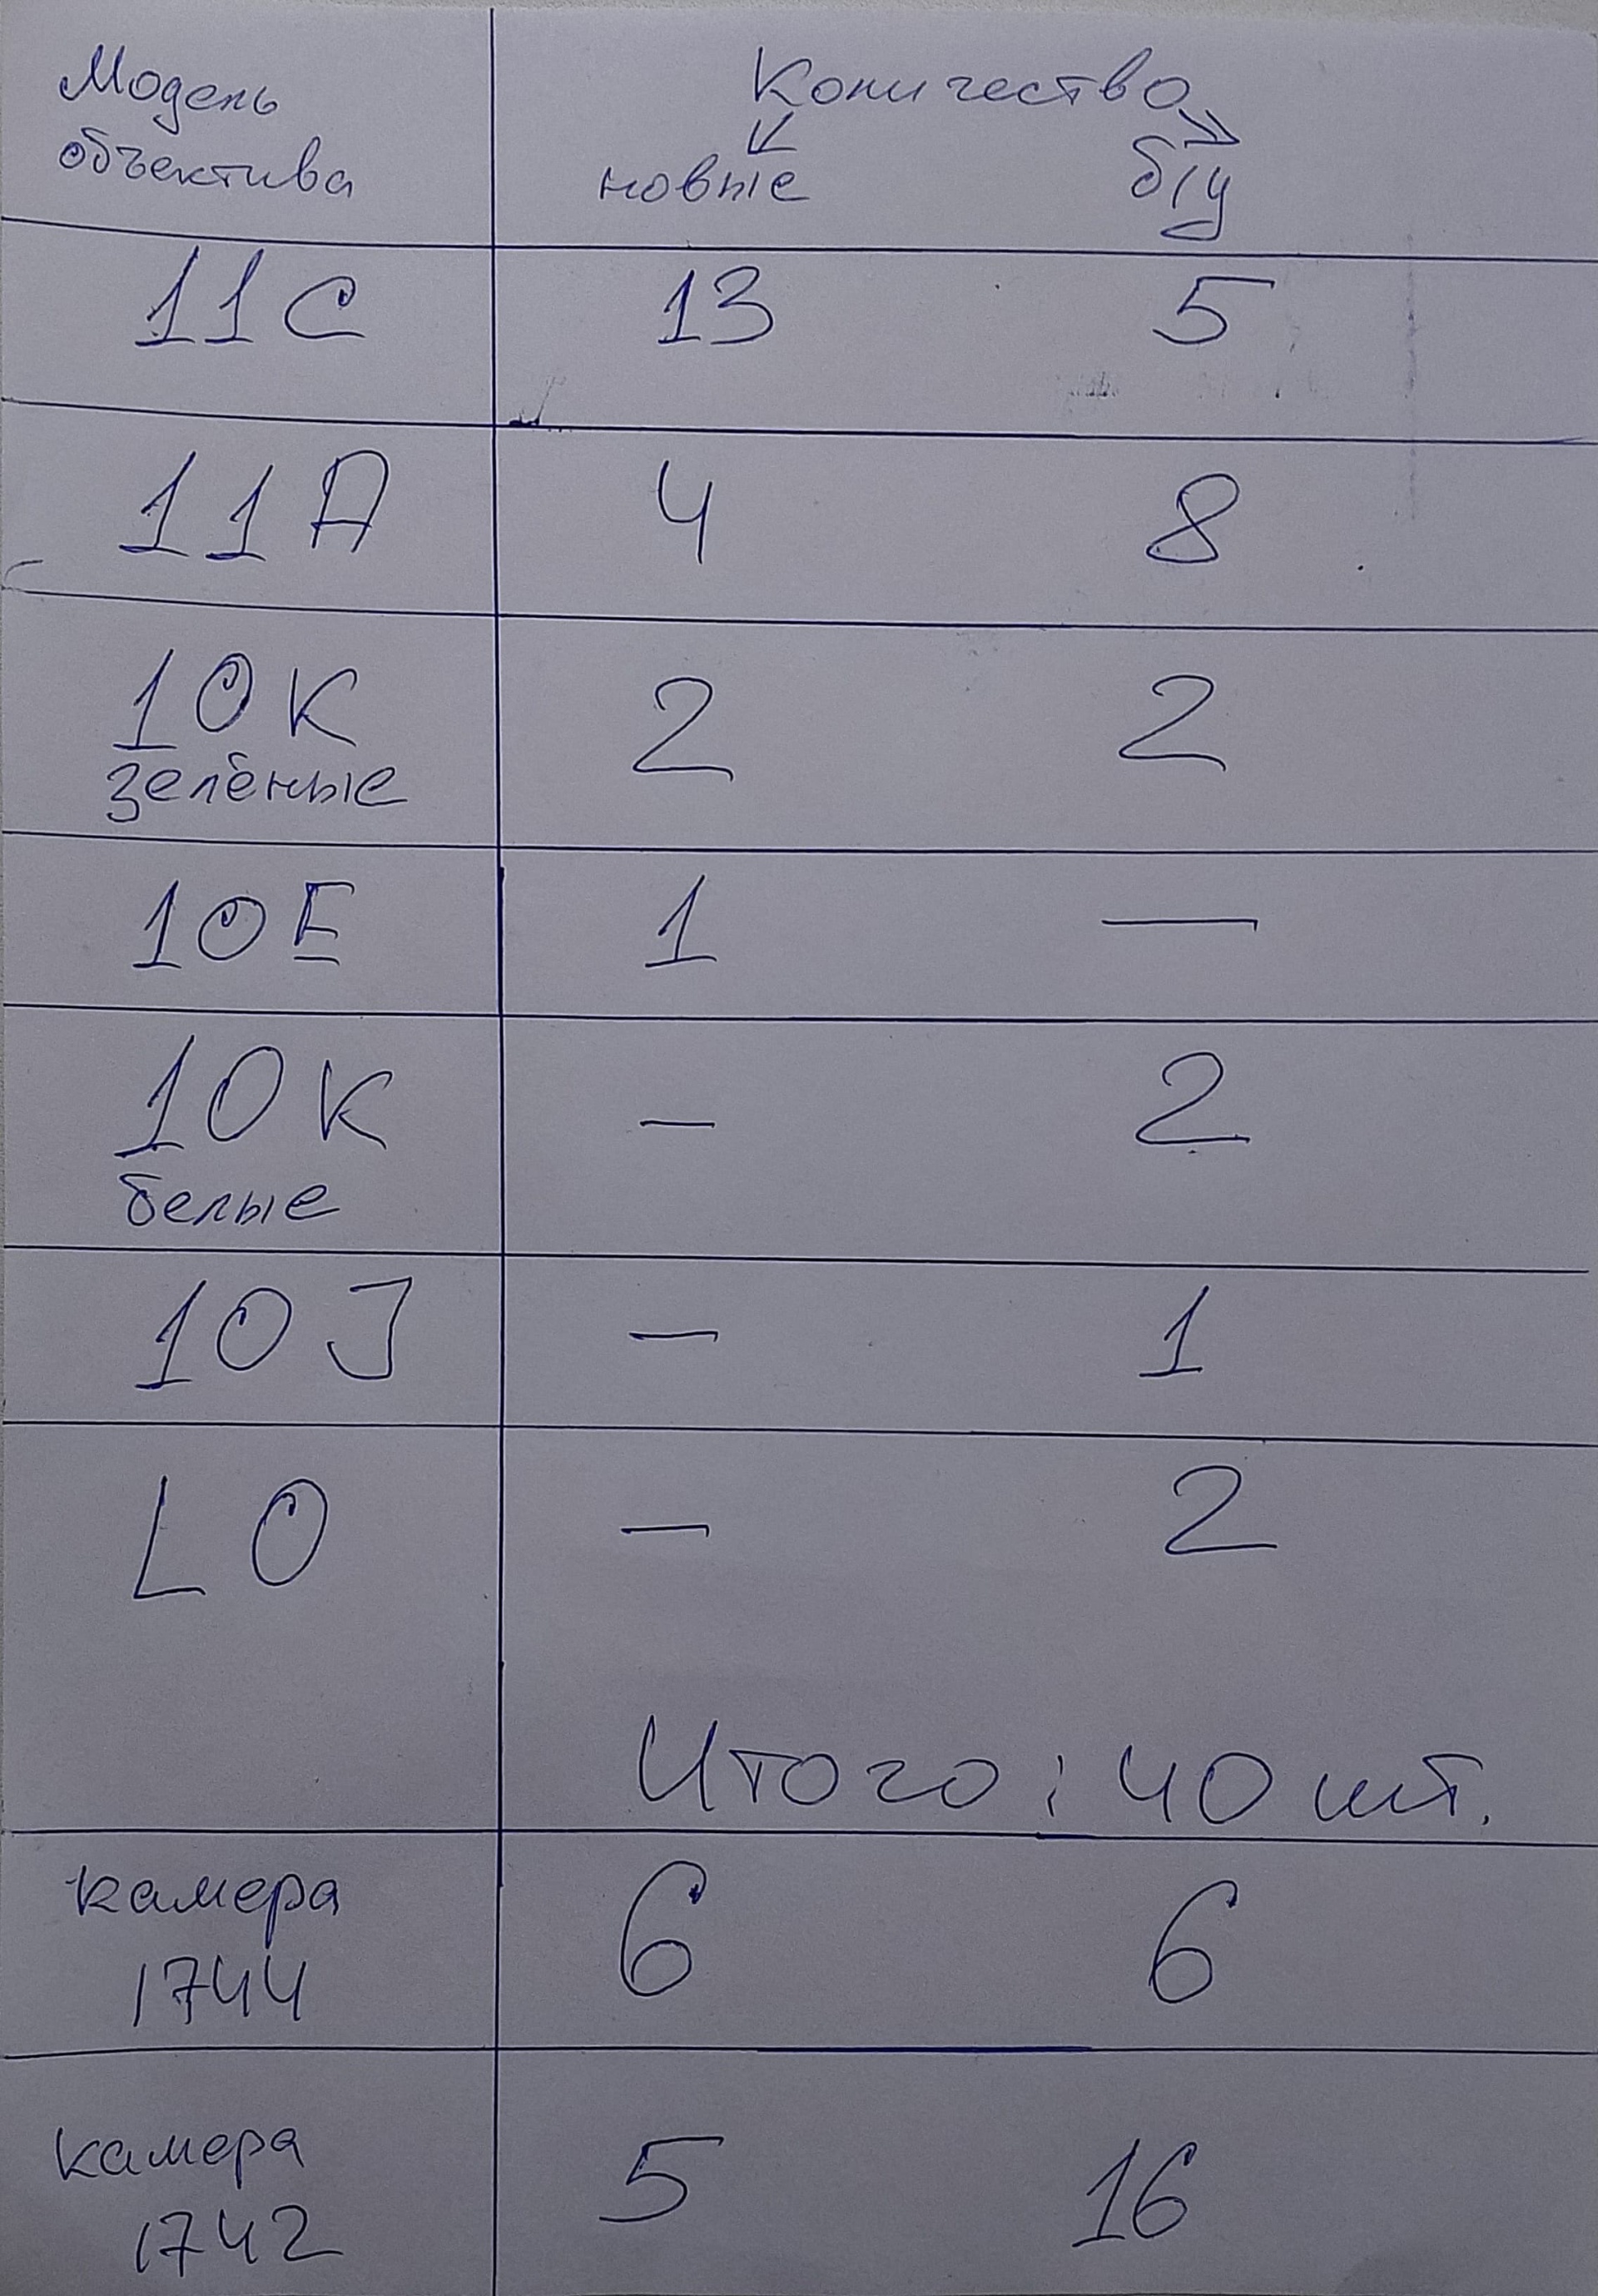 Модель Количество
объектива новые б/у
11C 13 5
11A 4 8
10K 2 2
зелёные
10E 1 —
10K — 2
белые
10J — 1
LO — 2
Итого: 40 шт.
камера 6 6
1744
камера 5 16
1742